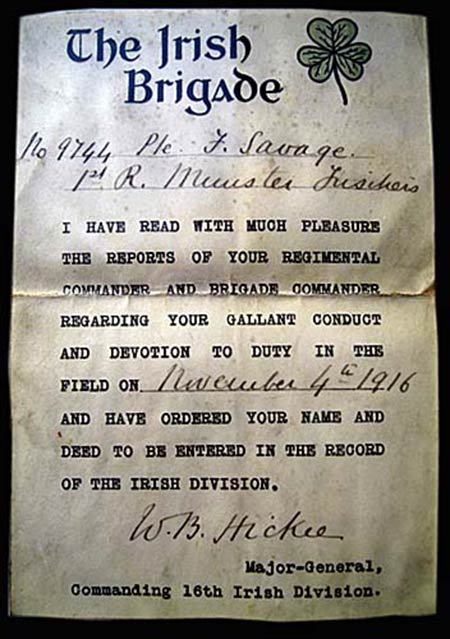 The Irish
Brigade
No 9744 Pte F. Savage.
1st R. Munster Fusiliers
I HAVE READ WITH MUCH PLEASURE
THE REPORTS OF YOUR REGIMENTAL
COMMANDER AND BRIGADE COMMANDER
REGARDING YOUR GALLANT CONDUCT
AND DEVOTION TO DUTY IN THE
FIELD ON November 4th 1916
AND HAVE ORDERED YOUR NAME AND
DEED TO BE ENTERED IN THE RECORD
OF THE IRISH DIVISION.
W.B. Hickie
Major-General,
Commanding 16th Irish Division.